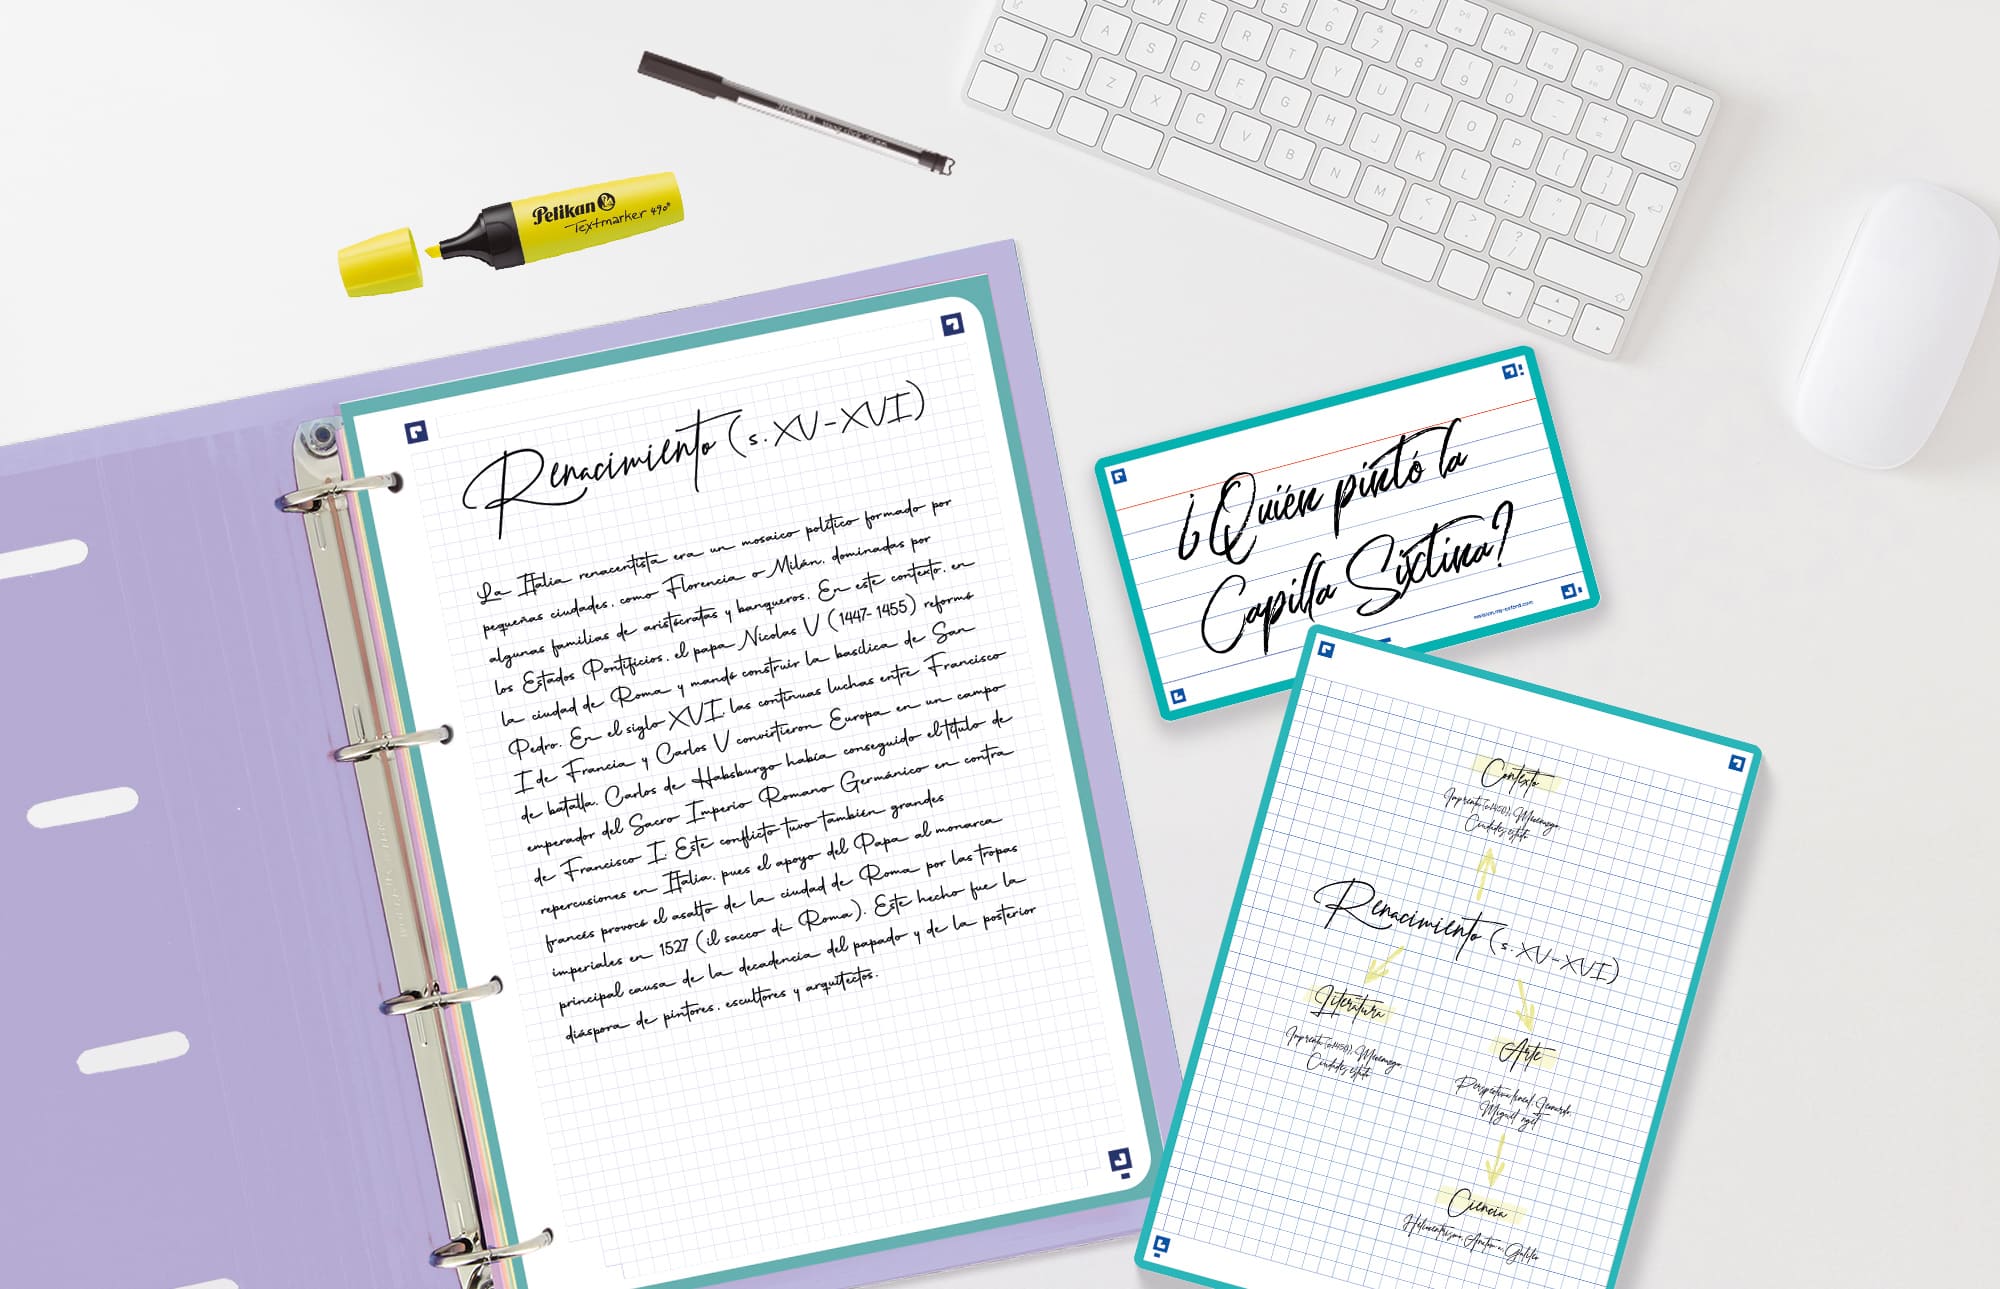 Pelikan
Textmarker 490®
Renacimiento (s. XV-XVI)
La Italia renacentista era un mosaico político formado por
pequeñas ciudades, como Florencia o Milán, dominadas por
algunas familias de aristócratas y banqueros. En este contexto, en
los Estados Pontificios, el papa Nicolas V (1447-1455) reformó
la ciudad de Roma y mandó construir la basílica de San
Pedro. En el siglo XVI, las continuas luchas entre Francisco
I de Francia y Carlos V convirtieron Europa en un campo
de batalla. Carlos de Habsburgo había conseguido el título de
emperador del Sacro Imperio Romano Germánico en contra
de Francisco I. Este conflicto tuvo también grandes
repercusiones en Italia, pues el apoyo del Papa al monarca
francés provocó el asalto de la ciudad de Roma por las tropas
imperiales en 1527 (il sacco di Roma). Este hecho fue la
principal causa de la decadencia del papado y de la posterior
diáspora de pintores, escultores y arquitectos.
¿Quién pintó la
Capilla Sixtina?
Contexto
Imprenta (c1450), Mecenazgo,
Ciudades estado
Renacimiento (s. XV-XVI)
Literatura
Imprenta (c1450), Mecenazgo,
Ciudades estado
Arte
Perspectiva lineal, Leonardo,
Miguel
Ciencia
Galileo